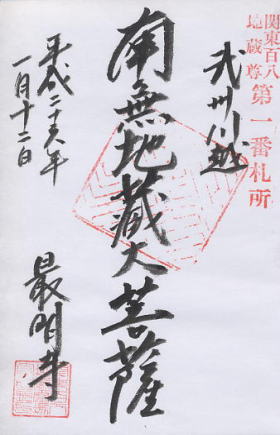 関東百八
地蔵尊
第一番札所
武州川越
南無地蔵大菩薩
平成二十六年
一月十二日
最明寺